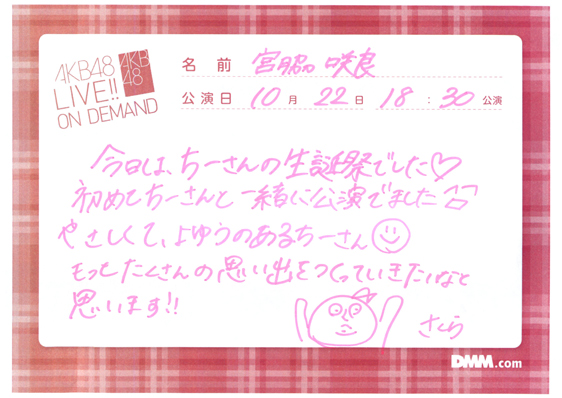 AKB48
LIVE!!
ON DEMAND
AKB
48
名前 宮脇咲良
公演日 10月 22日 18:30公演
今日は、ちーさんの生誕祭でした♡
初めてちーさんと一緒に公演でました
やさしくて、よゆうのあるちーさん
もっとたくさんの思い出をつくっていきたいなと
思います!!
さくら
DMM.com